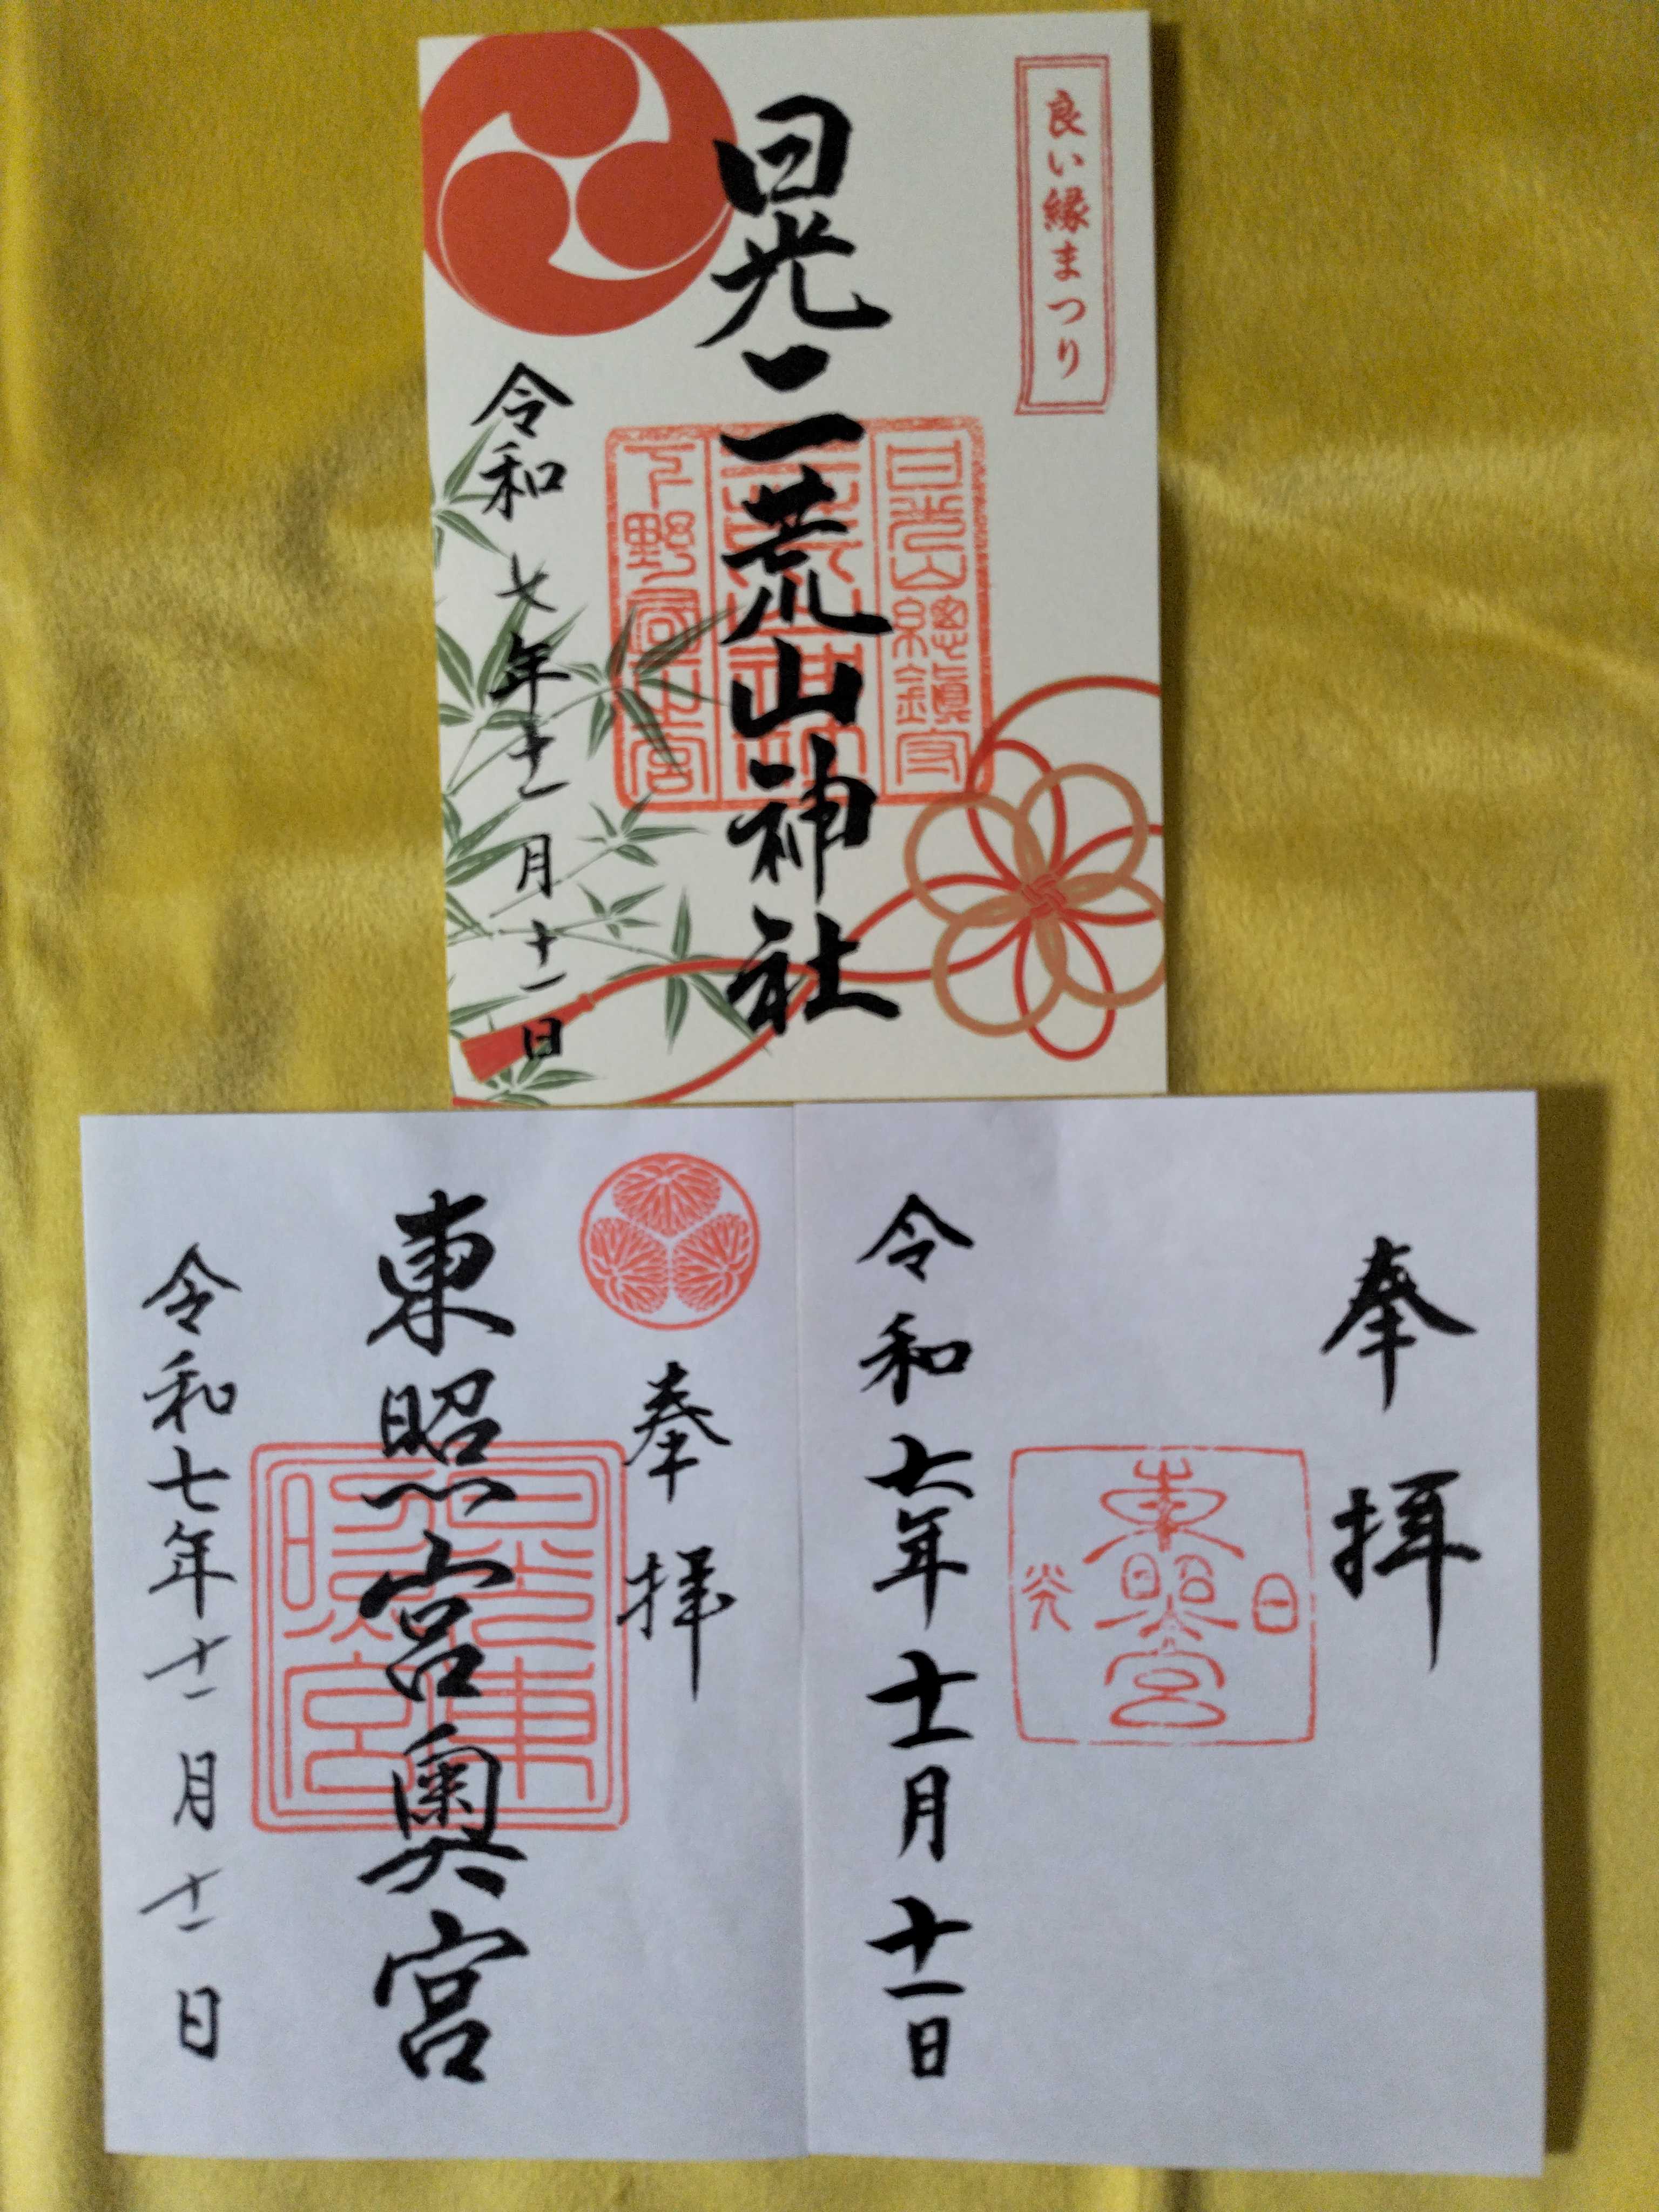 良い縁まつり
日光二荒山神社
日光山總鎮守
二荒山神社
令和七年十一月十一日
奉拝
日光
東照宮
令和七年十一月十一日
奉拝
東照宮奥宮
日光東
照宮
令和七年十一月十一日